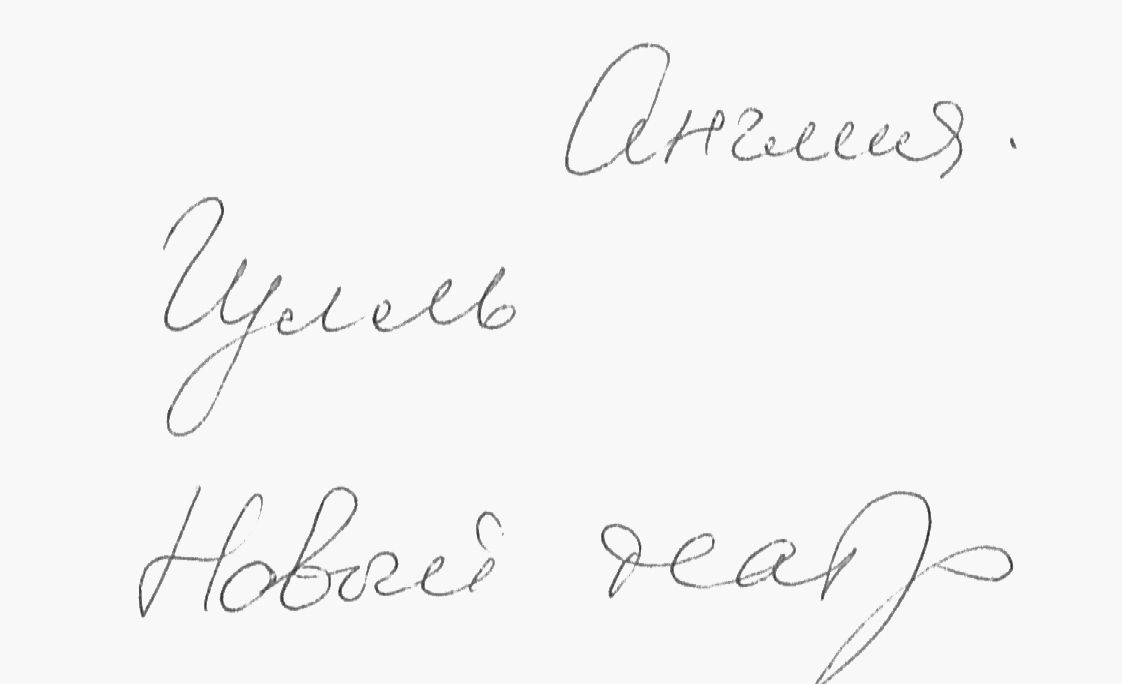 Англия.
Новый театр